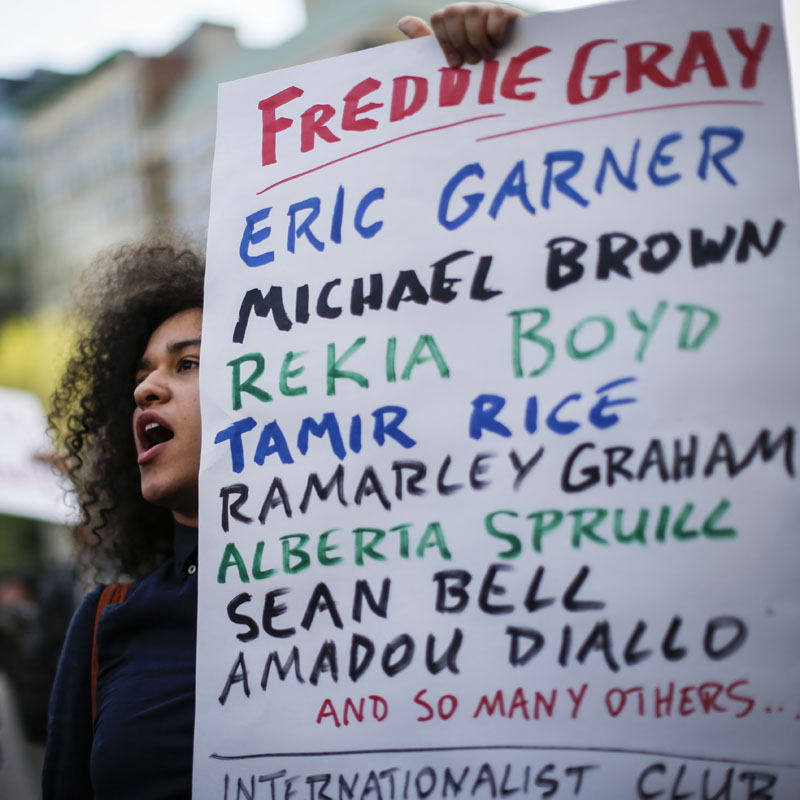 FREDDIE GRAY
ERIC GARNER
MICHAEL BROWN
REKIA BOYD
TAMIR RICE
RAMARLEY GRAHAM
ALBERTA SPRUILL
SEAN BELL
AMADOU DIALLO
AND SO MANY OTHERS...
INTERNATIONALIST CLUB